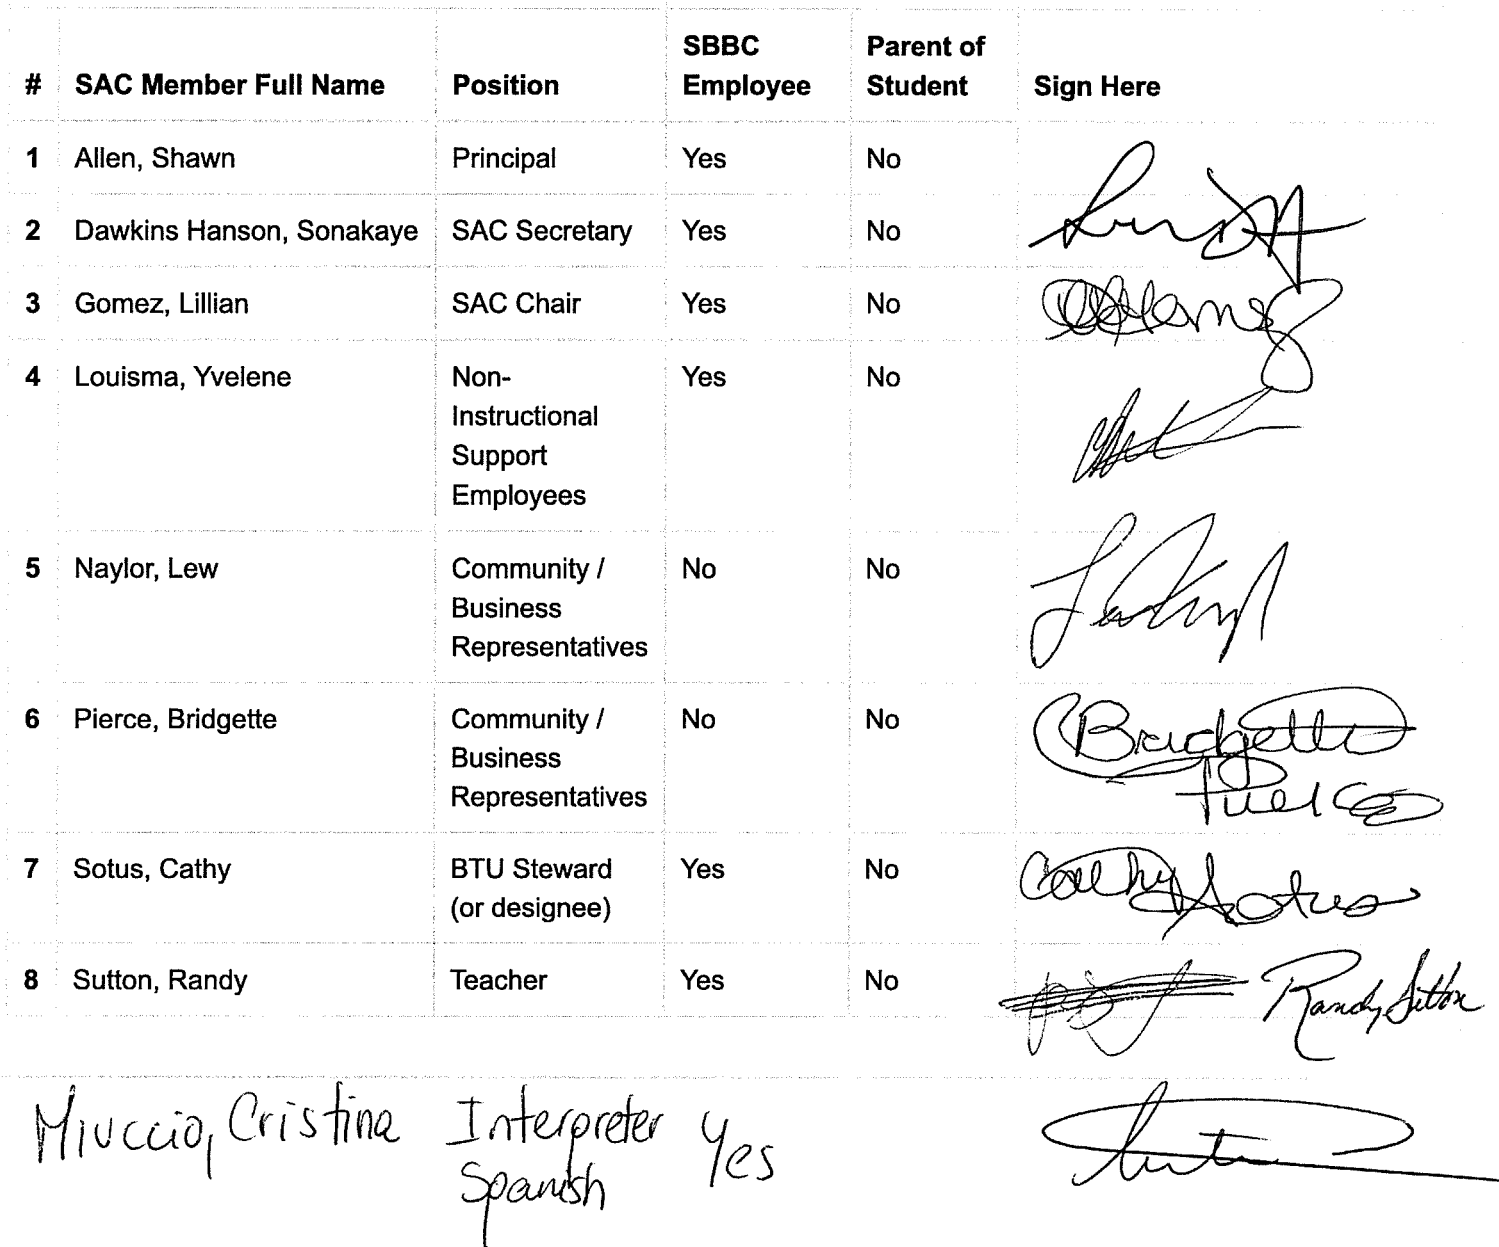 # SAC Member Full Name Position SBBC Employee Parent of Student Sign Here
1 Allen, Shawn Principal Yes No
2 Dawkins Hanson, Sonakaye SAC Secretary Yes No
3 Gomez, Lillian SAC Chair Yes No
4 Louisma, Yvelene Non-
Instructional
Support
Employees Yes No
5 Naylor, Lew Community /
Business
Representatives No No
6 Pierce, Bridgette Community /
Business
Representatives No No Bridgette
7 Sotus, Cathy BTU Steward
(or designee) Yes No Cathy Sotus
8 Sutton, Randy Teacher Yes No Randy Sutton
Miuccio, Cristina Interpreter Yes
Spanish